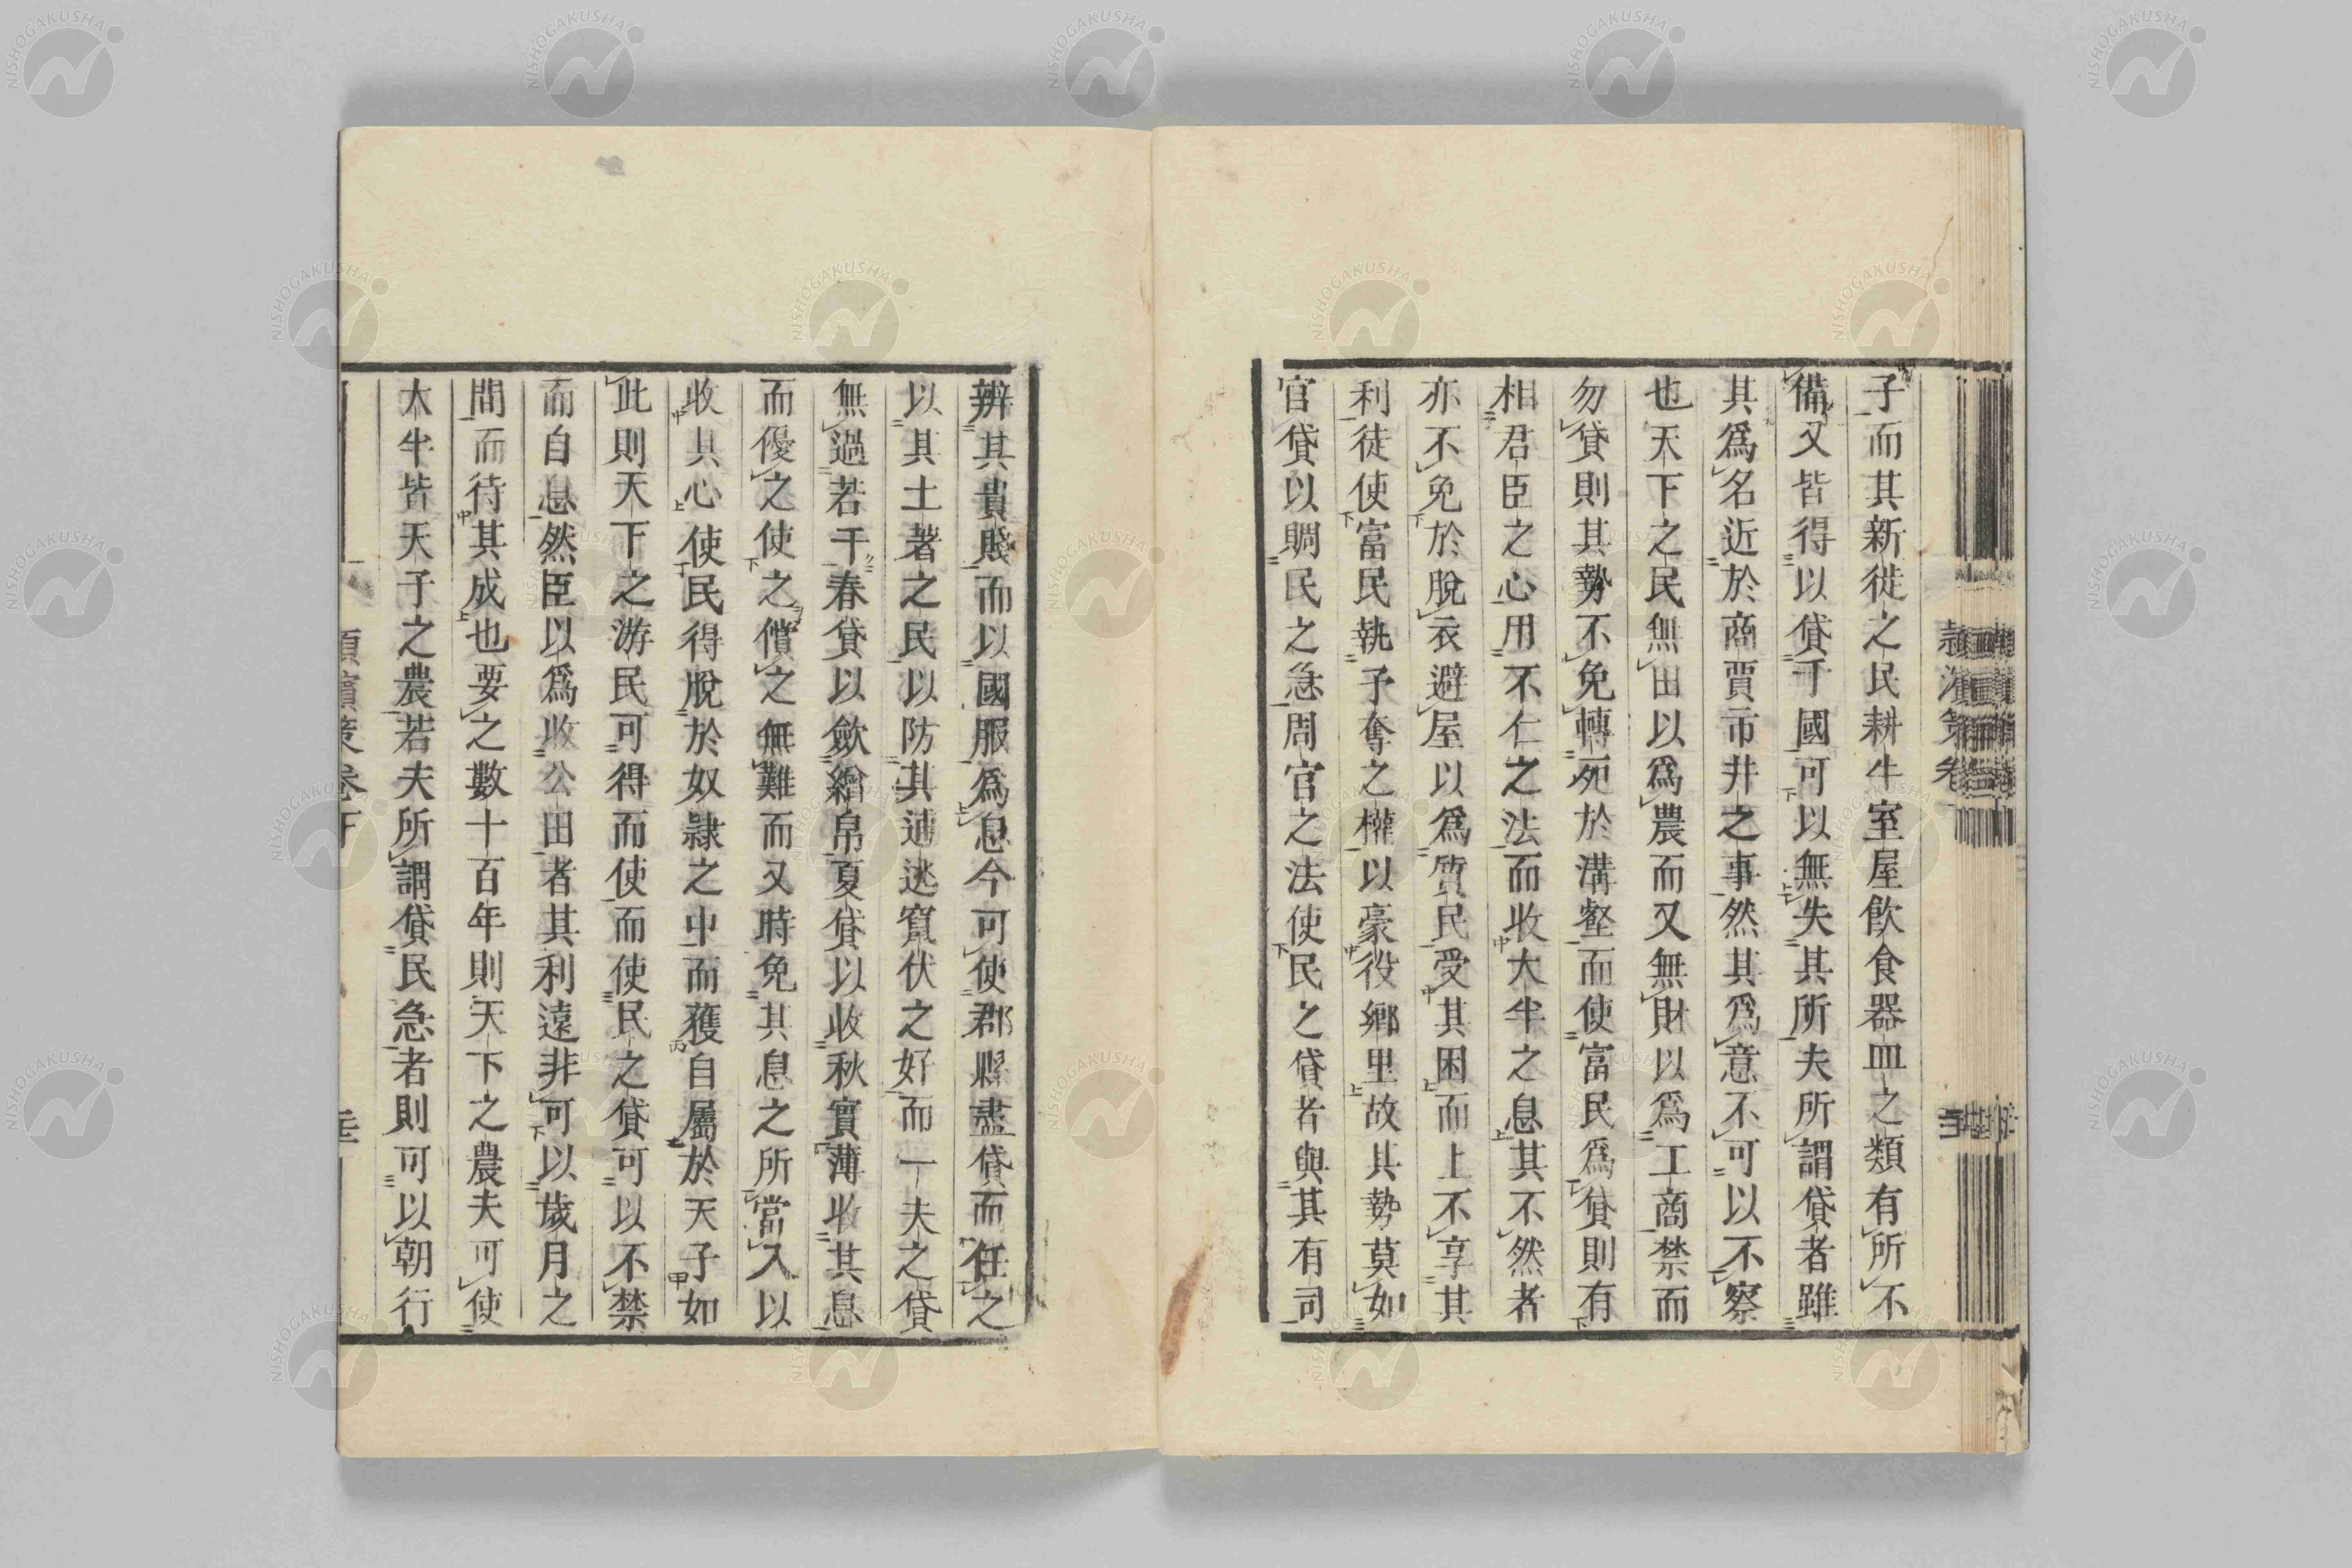 子而其新徙之民耕牛室屋飲食器皿之類有所不
備又皆得以貸于國可以無失其所夫所謂貸者雖
其爲名近於商賈市井之事然其爲意不可以不察
也天下之民無田以爲農而又無財以爲工商禁而
勿貸則其勢不免轉死於溝壑而使富民爲貸則有
相君臣之心用不仁之法而收大半之息其不然者
亦不免於脫衣避屋以爲質民受其困而上不享其
利徒使富民執予奪之權以豪役鄉里故其勢莫如
官貸以賙民之急周官之法使民之貸者與其有司
辨其貴賤而以國服爲息今可使郡縣盡貸而任之
以其土著之民以防其逋逃竄伏之姧而一夫之貸
無過若干春貸以斂繒帛夏貸以收秋實薄收其息
而優之使之償之無難而又時免其息之所當入以
收其心使民得脫於奴隸之中而獲自屬於天子如
此則天下之游民可得而使而使民之貸可以不禁
而自息然臣以爲收公田者其利遠非可以歲月之
間而待其成也要之數十百年則天下之農夫可使
太半皆天子之農若夫所謂貸民急者則可以朝行
潁濱策卷下
NISHOGAKUSHA